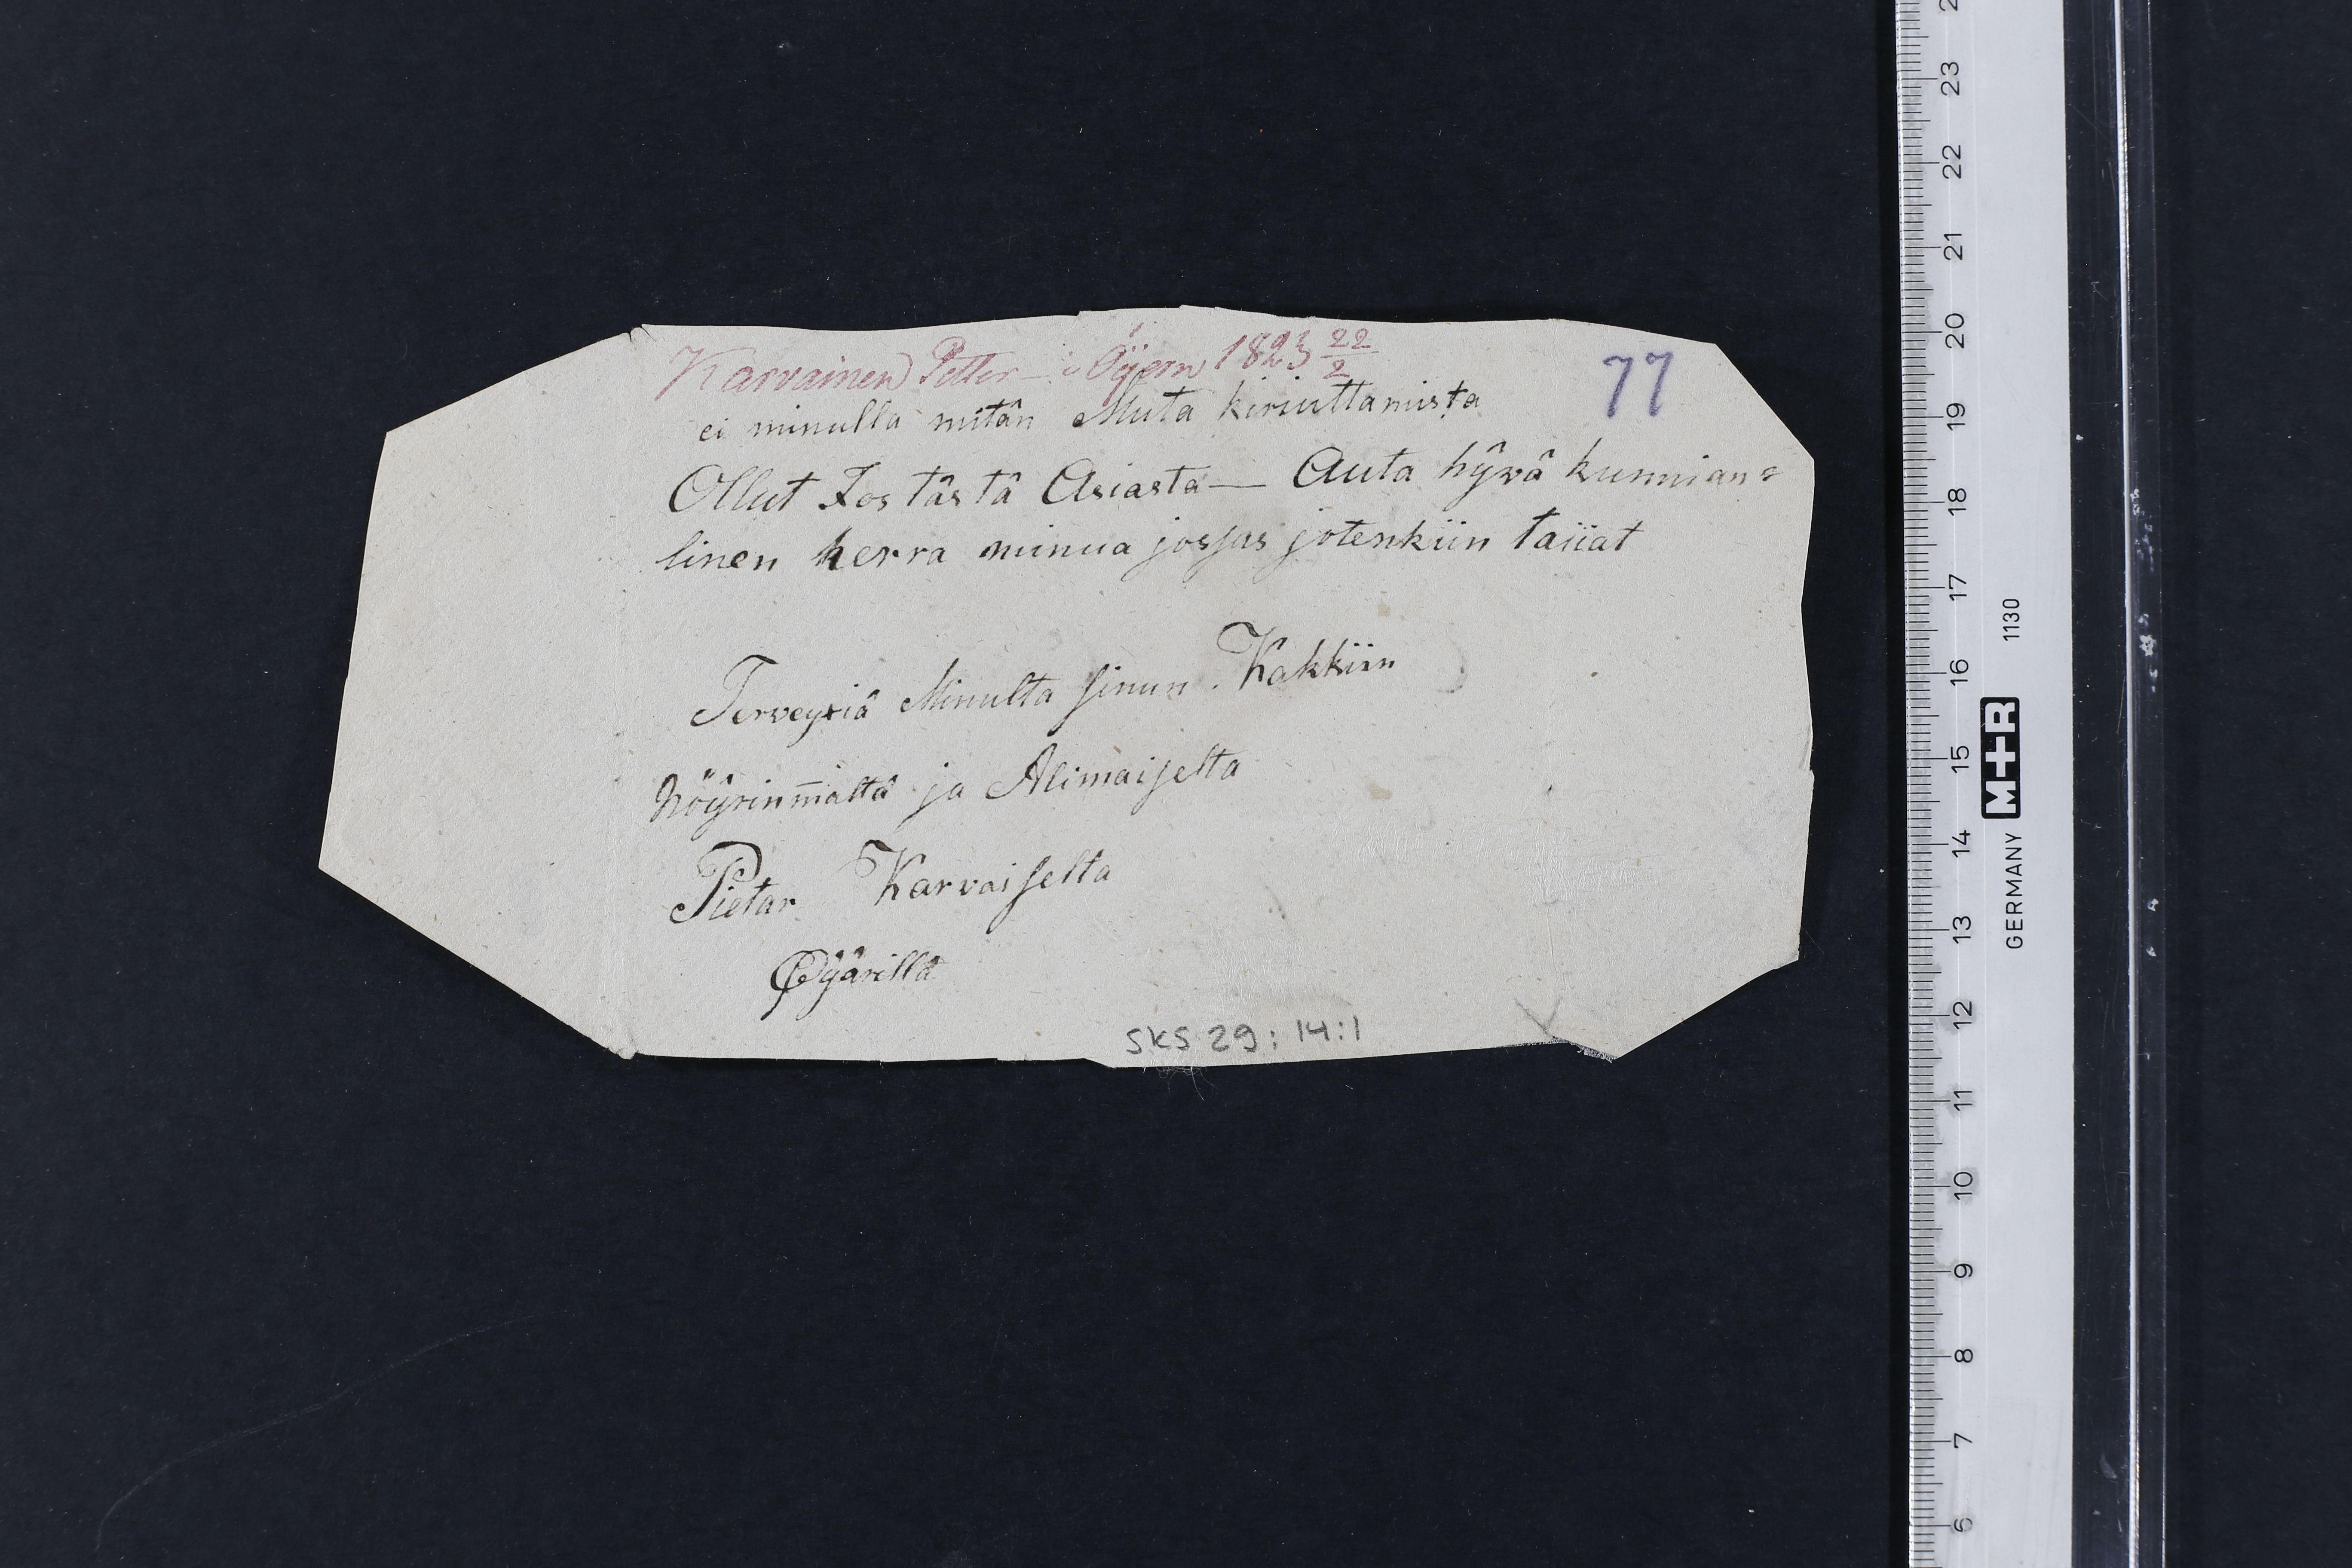 Karvainen Petter – i Öijern 1823 22/2
77
ei minulla mitân Muta kiriuttamista
Ollut Jos tâstâ Asiasta — Auta hŷvâ kunnian=
linen herra minua josjus jotenkiin taiiat
Terveysiâ Minulta sinun Kakkiin
nöŷrinmältâ ja Alimaiselta
Pietar Karvaiselta
Öijârillâ
SKS 29:14:1
2 23 22 21 20 19 18 17 16 15 14 13 12 11 10 9 8 7 6
1130
GERMANY M+R